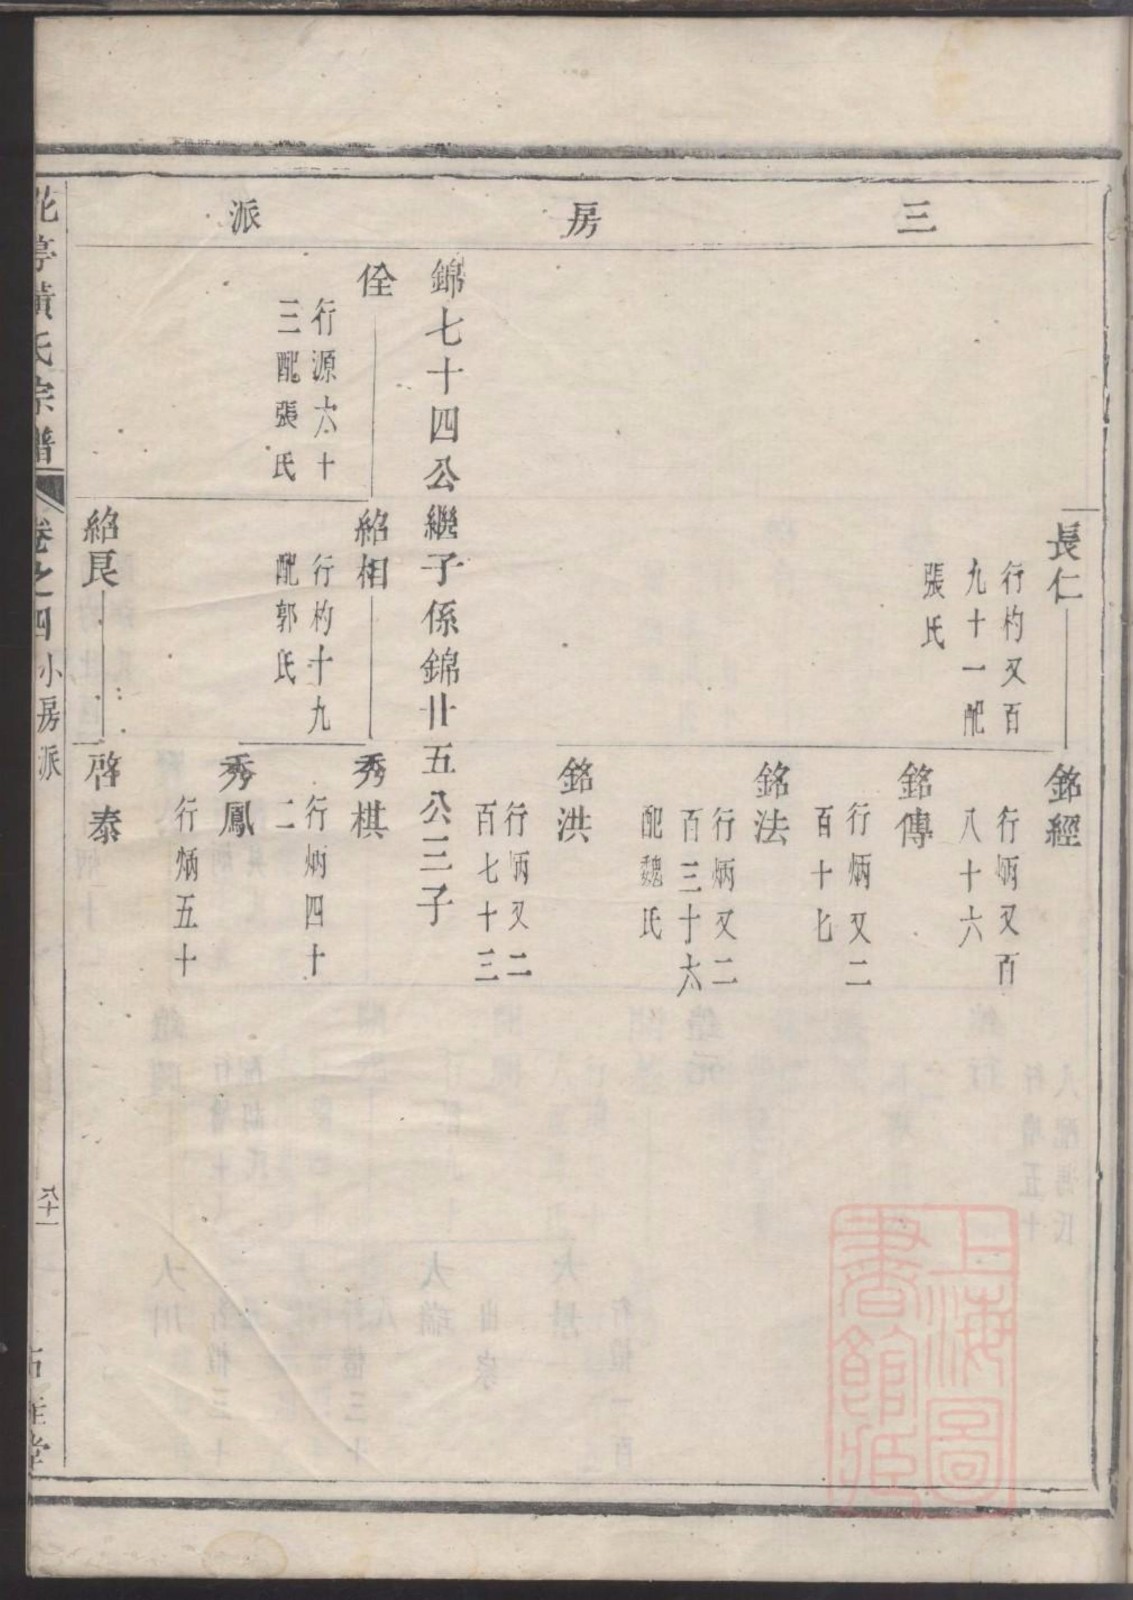 三房派
長仁
行杓又百
九十一配
張氏
銘經
行炳又百
八十六
銘傳
行炳又二
百十七
銘法
行炳又二
百三十六
配魏氏
銘洪
行炳又二
百七十三
錦七十四公繼子係錦廿五公三子
佺
行源六十
三配張氏
紹相
行杓十九
配郭氏
秀棋
行炳四十
二
秀鳳
行炳五十
紹良
啓泰
花亭黃氏宗譜
卷之四
小房派
八十一
堂
上海圖
書館藏